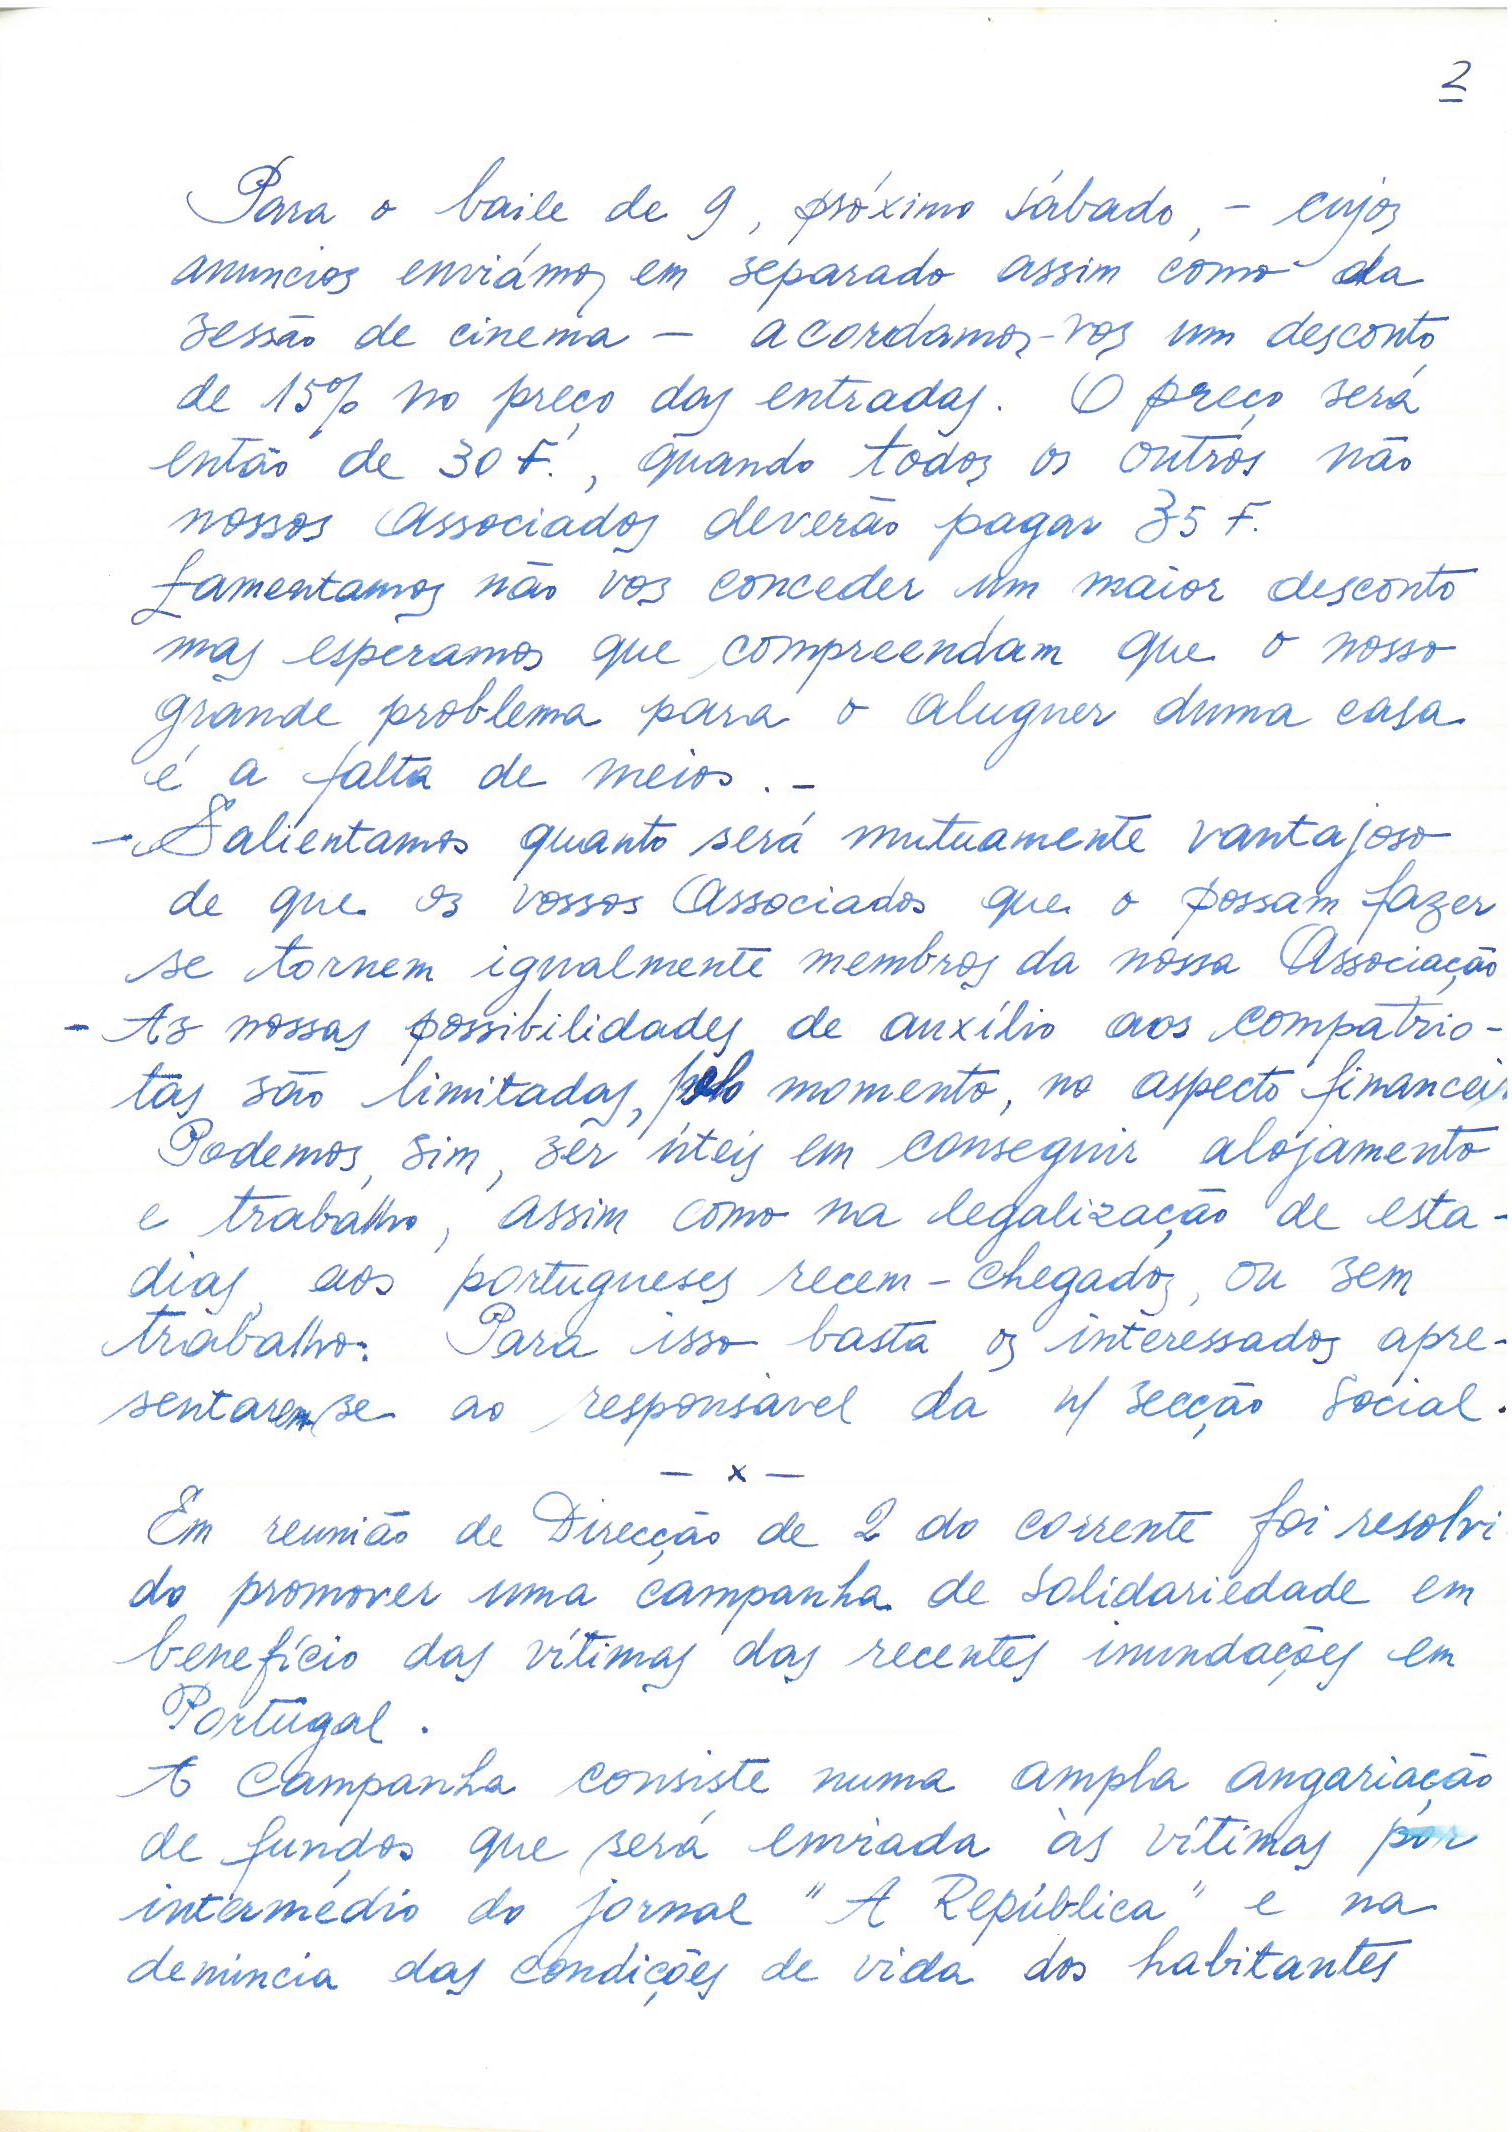 2
Para o baile de 9, próximo sábado, - cujos
anuncios enviámos em separado assim como da
sessão de cinema - acordamos-vos um desconto
de 15% no preço das entradas. O preço será
então de 30 F., quando todos os outros não
nossos Associados deverão pagar 35 F.
Lamentamos não vos conceder um maior desconto
mas esperamos que compreendam que o nosso
grande problema para o aluguer duma casa
é a falta de meios. -
- Salientamos quanto será mutuamente vantajoso
de que os vossos Associados que o possam fazer
se tornem igualmente membros da nossa Associação
- As nossas possibilidades de auxílio aos compatrio-
tas são limitadas, pelo momento, no aspecto financeir
Podemos, sim, ser úteis em conseguir alojamento
e trabalho, assim como na legalização de esta-
dias, aos portugueses recem-chegados, ou sem
trabalho. Para isso basta os interessados apre-
sentarem se ao responsável da n/ secção Social.
- x -
Em reunião de Direcção de 2 do corrente foi resolvi
do promover uma campanha de solidariedade em
benefício das vítimas das recentes inundações em
Portugal.
A campanha consiste numa ampla angariação
de fundos que será enviada às vítimas por
intermédio do jornal "A República" e na
denúncia das condições de vida dos habitantes